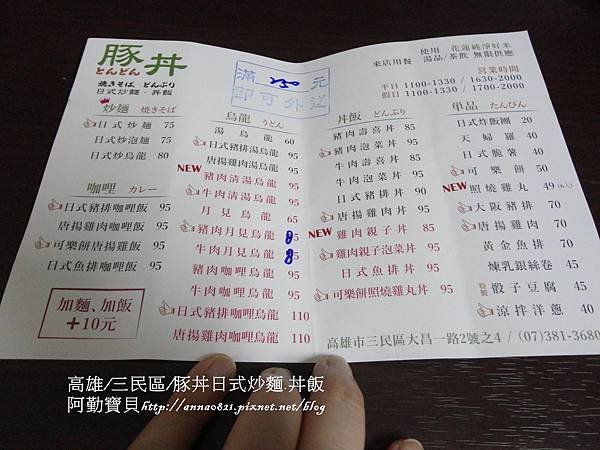 豚丼
とんどん
焼きそば どんぶり
日式炒麵・丼飯
滿 250 元
即可外送
使用 花蓮純淨好米
來店用餐 湯品/茶飲 無限供應
營業時間
平日 1100-1330 / 1630-2000
假日 1100-1330 / 1700-2000
炒麵 焼きそば
日式炒麵 75
日式炒泡麵 75
日式炒烏龍 80
咖哩 カレー
日式豬排咖哩飯 95
唐揚雞肉咖哩飯 95
可樂餅唐揚雞飯 95
日式魚排咖哩飯 95
加麵、加飯
+10元
烏龍 うどん
湯烏龍 60
日式豬排湯烏龍 95
唐揚雞肉湯烏龍 95
NEW 豬肉清湯烏龍 95
牛肉清湯烏龍 95
月見烏龍 65
豬肉月見烏龍 85
牛肉月見烏龍 85
豬肉咖哩烏龍 95
牛肉咖哩烏龍 95
日式豬排咖哩烏龍 110
唐揚雞肉咖哩烏龍 110
丼飯 どんぶり
豬肉壽喜丼 85
豬肉泡菜丼 95
牛肉壽喜丼 95
牛肉泡菜丼 95
日式豬排丼 95
唐揚雞肉丼 95
NEW 雞肉親子丼 85
雞肉親子泡菜丼 95
日式魚排丼 95
可樂餅照燒雞丸丼 95
單品 たんぴん
日式炸飯糰 20
天婦羅 40
日式脆薯 40
可樂餅 50
NEW 照燒雞丸 49(6入)
大阪豬排 70
唐揚雞肉 70
黃金魚排 70
煉乳銀絲卷 40
特製 骰子豆腐 45
涼拌洋蔥 40
高雄市三民區大昌一路2號之4 / (07)381-3680
高雄/三民區/豚丼日式炒麵.丼飯
阿勤寶貝http://anna0821.pixnet.net/blog